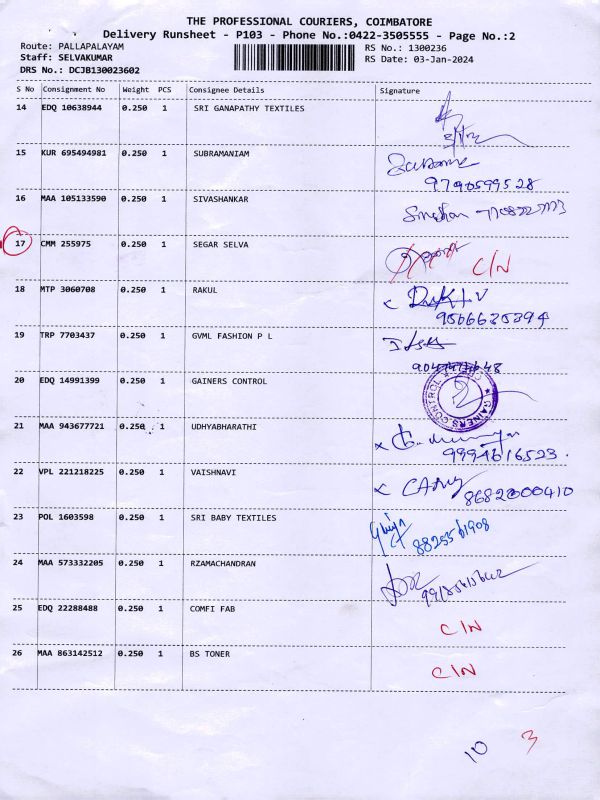 THE PROFESSIONAL COURIERS, COIMBATORE
Delivery Runsheet - P103 - Phone No.:0422-3505555 - Page No.:2
Route: PALLAPALAYAM RS No.: 1300236
Staff: SELVAKUMAR RS Date: 03-Jan-2024
DRS No.: DCJB130023602
S No Consignment No Weight PCS Consignee Details Signature
14 EDQ 10638944 0.250 1 SRI GANAPATHY TEXTILES
15 KUR 695494981 0.250 1 SUBRAMANIAM
9790599528
16 MAA 105133590 0.250 1 SIVASHANKAR
17 CMM 255975 0.250 1 SEGAR SELVA C/N
18 MTP 3060708 0.250 1 RAKUL
19 TRP 7703437 0.250 1 GVML FASHION P L
20 EDQ 14991399 0.250 1 GAINERS CONTROL GAINERS CONTROL
21 MAA 943677721 0.250 1 UDHYABHARATHI
9994616523.
22 VPL 221218225 0.250 1 VAISHNAVI
8682000410
23 POL 1603598 0.250 1 SRI BABY TEXTILES
8825561908
24 MAA 573332205 0.250 1 RZAMACHANDRAN
25 EDQ 22288488 0.250 1 COMFI FAB C/N
26 MAA 863142512 0.250 1 BS TONER C/N
10 3